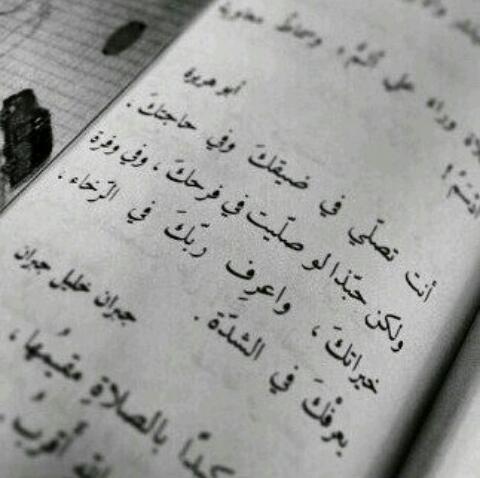 وراء على
أبو هريرة
أنت تصلّي في ضيقكَ وفي حاجتكَ .
ولكن حبّذا لو صلّيت في فرحكَ ، وفي وفرة
خيراتكَ ، واعرف ربّكَ في الرّخاء ،
يعرفْكَ في الشدّة .
جبران خليل جبران
بالصلاةِ مقيمُها ،
أقربُ